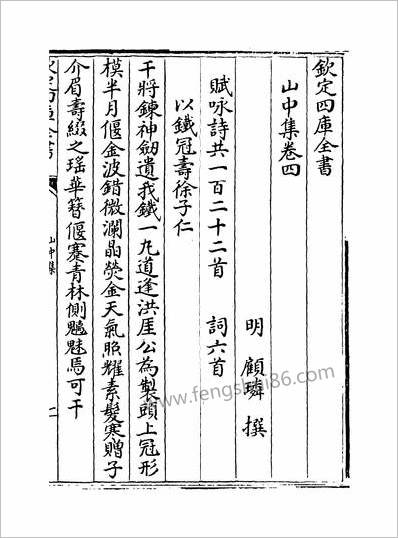 欽定四庫全書
山中集卷四
明 顧璘 撰
賦咏詩共一百二十二首 詞六首
以鐵冠壽徐子仁
干將鍊神劒遺我鐵一丸道逢洪厓公為製頭上冠形
模半月偃金波錯微瀾晶熒金天氣照耀素髮寒贈子
介眉壽綴之瑶華簪偃蹇青林側魑魅焉可干
山中集
www.fengshui86.com